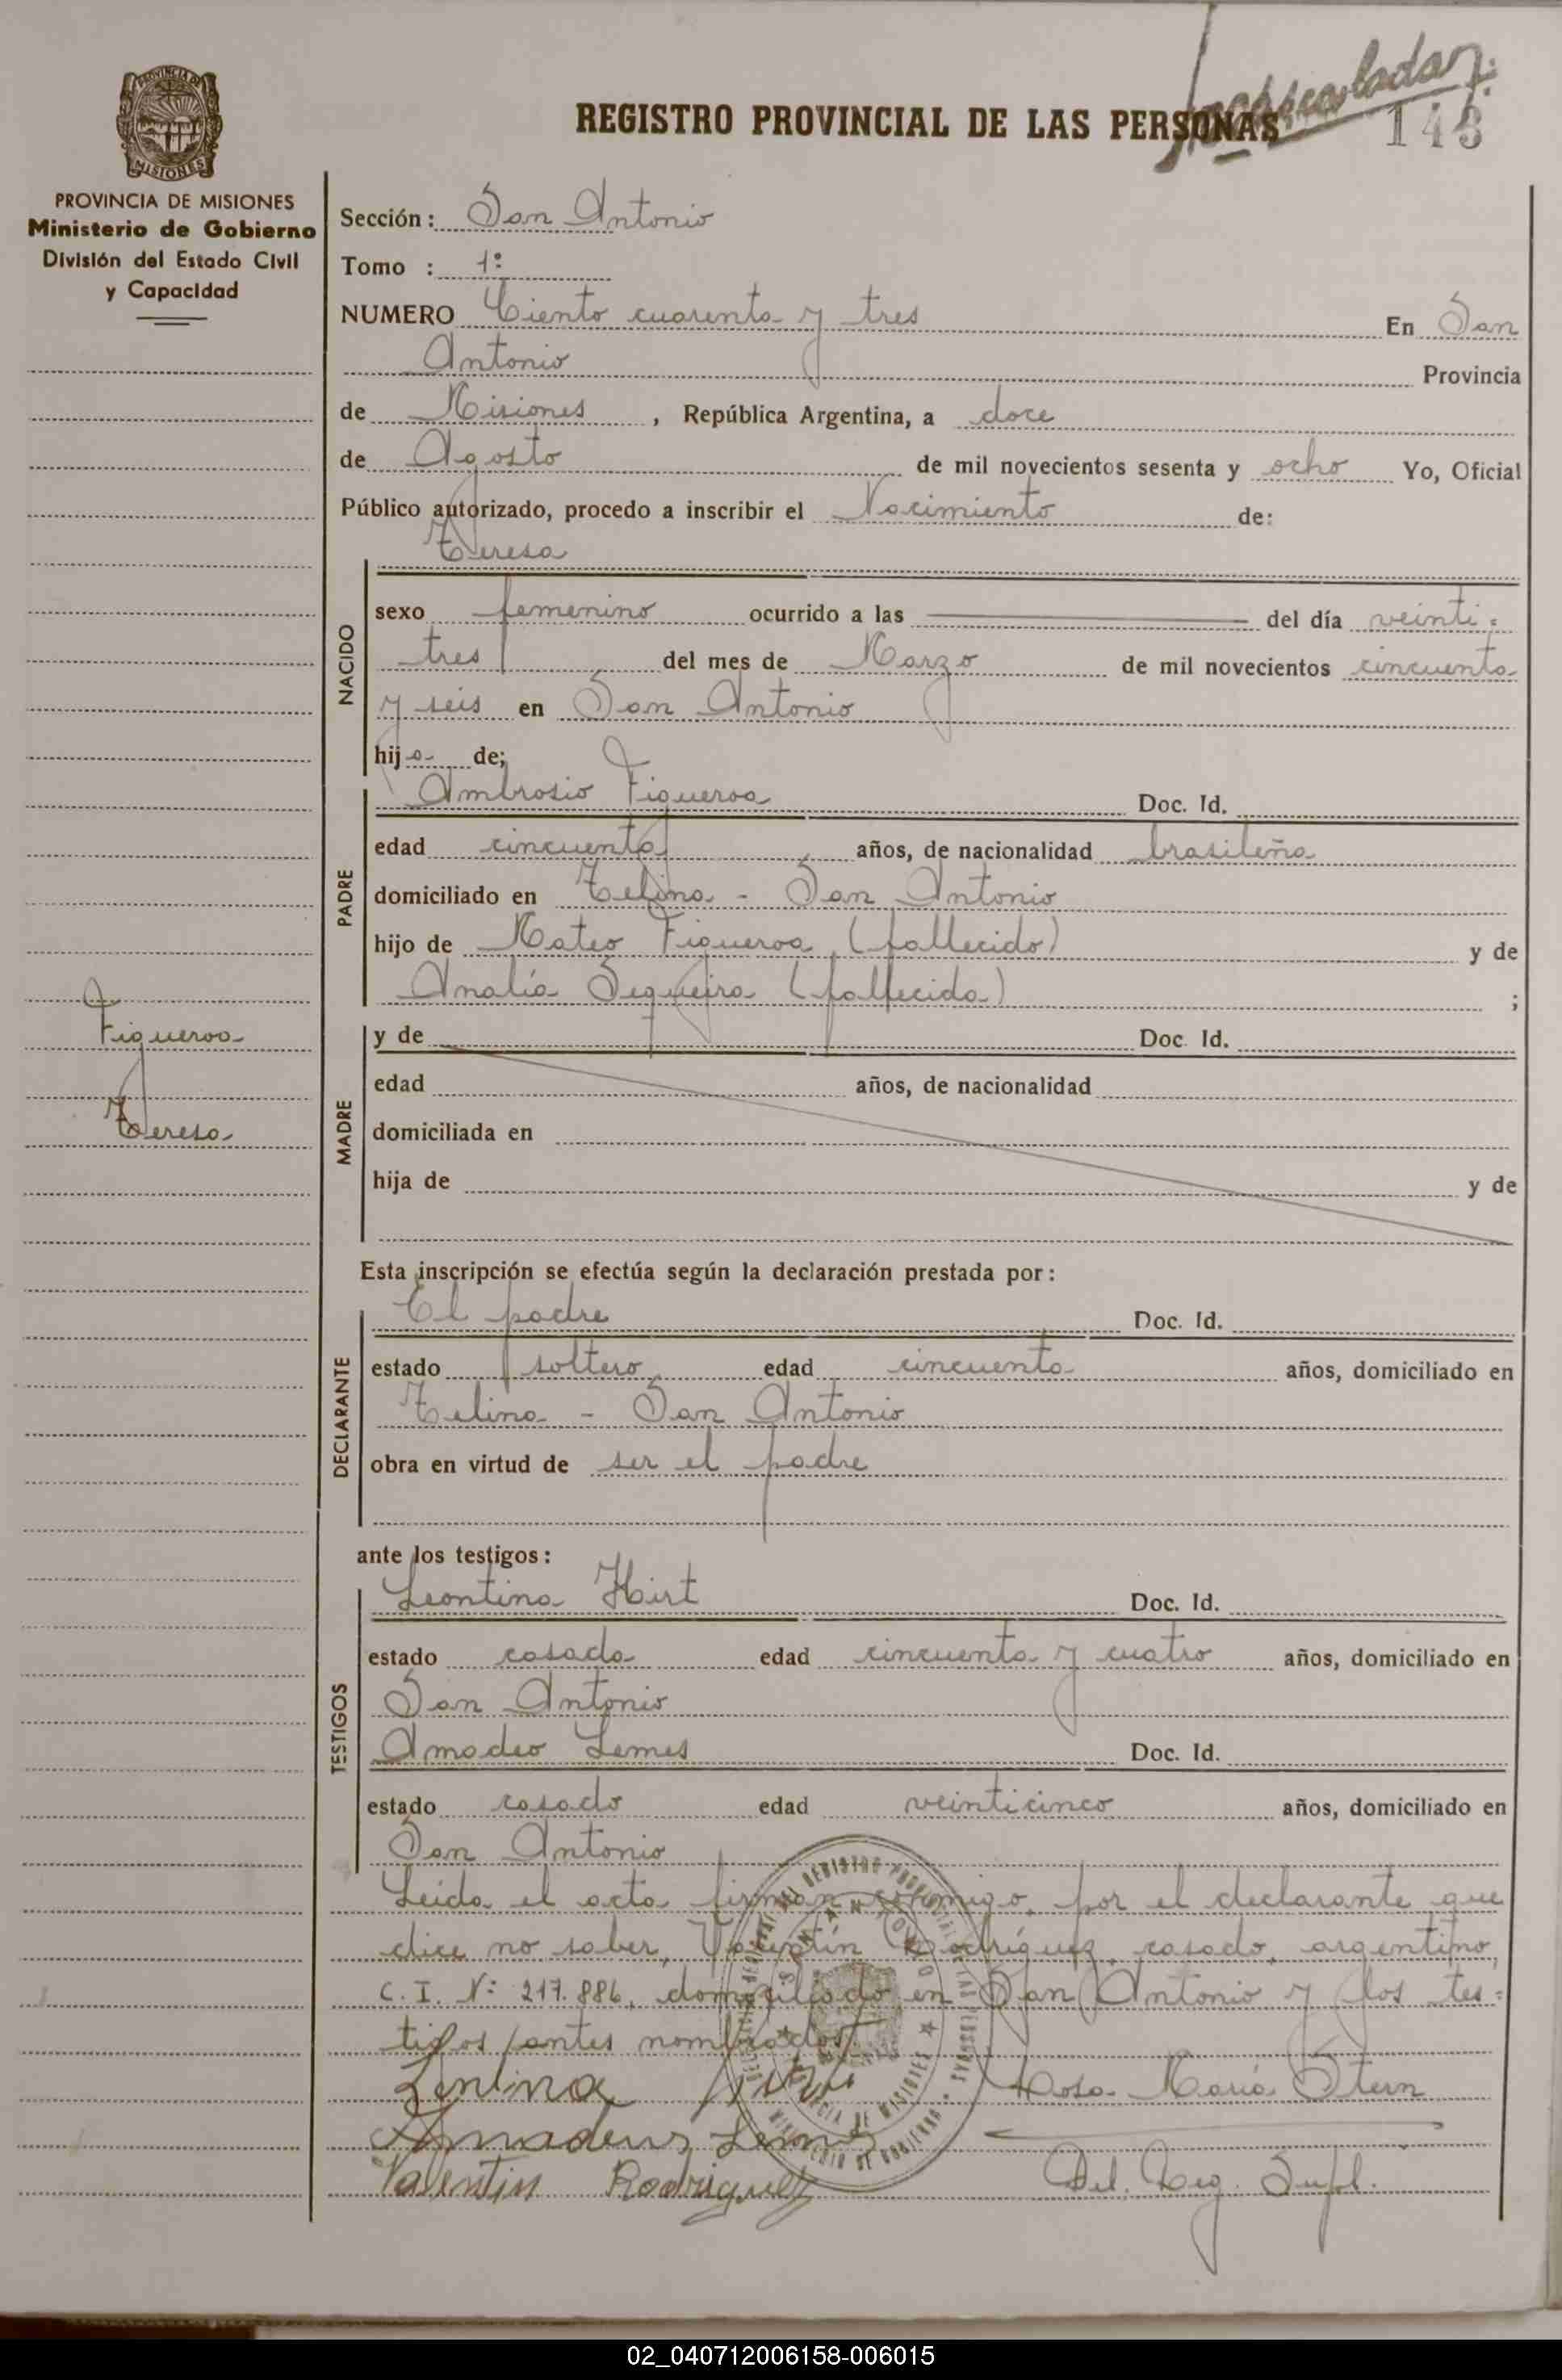 REGISTRO PROVINCIAL DE LAS PERSONAS
143
PROVINCIA DE MISIONES
MISIONES
PROVINCIA DE MISIONES
Ministerio de Gobierno
División del Estado Civil
y Capacidad
Sección: San Antonio
Tomo : 1º
NUMERO Ciento cuarenta y tres En San
Antonio Provincia
de Misiones, República Argentina, a doce
de Agosto de mil novecientos sesenta y ocho Yo, Oficial
Público autorizado, procedo a inscribir el Nacimiento de:
Teresa
NACIDO
sexo femenino ocurrido a las del día veinti-
tres del mes de Marzo de mil novecientos cincuenta
y seis en San Antonio
hija de;
PADRE
Ambrosio Figueroa Doc. Id.
edad cincuenta años, de nacionalidad brasileña
domiciliado en Telina - San Antonio
hijo de Mateo Figueroa (fallecido) y de
Analía Sequeira (fallecida) ;
Figueroa
Teresa
MADRE
y de Doc. Id.
edad años, de nacionalidad
domiciliada en
hija de y de
Esta inscripción se efectúa según la declaración prestada por:
DECLARANTE
El padre Doc. Id.
estado soltero edad cincuenta años, domiciliado en
Telina - San Antonio
obra en virtud de ser el padre
ante los testigos:
TESTIGOS
Leontina Hirt Doc. Id.
estado casada edad cincuenta y cuatro años, domiciliado en
San Antonio
Amadeo Lemes Doc. Id.
estado casado edad veinticinco años, domiciliado en
San Antonio
Leída el acta firman conmigo, por el declarante que
dice no saber, Valentín Rodríguez, casado, argentino,
C. I. Nº 217.886, domiciliado en San Antonio y los tes-
tigos antes nombrados.
Rosa María Stern
Amadeus Lemes
Valentin Rodriguez Del. Reg. Supl.
02_040712006158-006015